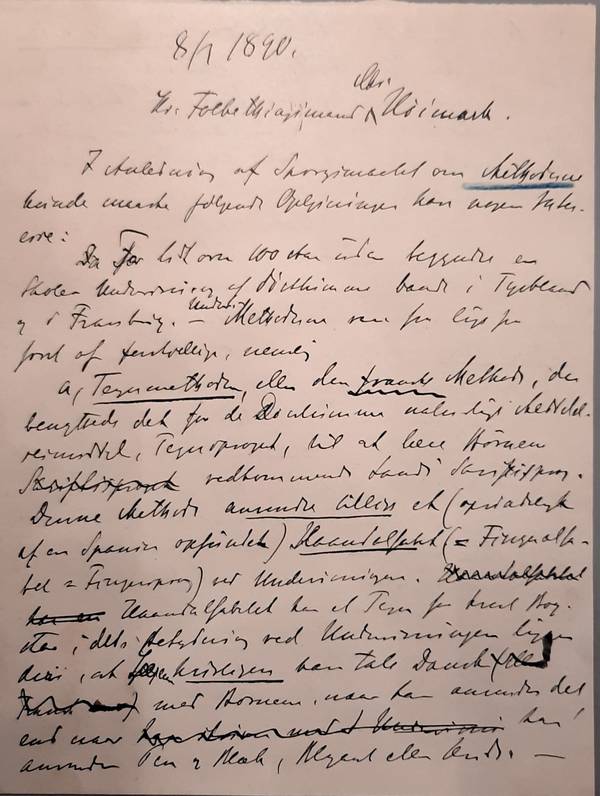 8/1 1890.
Hr. Folkethingsmand Chr. Høimark.
I Anledning af Spørgsmaalet om Methoderne
kunde maaske følgende Oplysninger have nogen Inter-
esse:
For lidt over 100 Aar siden begyndte en
Skolen Undervisning af døvstumme baade i Tydskland
og i Frankrig. – Undervis. Methoderne vare fra
først af forskellige, nemlig
a, Tegnmethoden, eller den franske Methode, der
benyttede det for de Døvstumme naturlige Meddel-
elsesmiddel, Tegnsproget, til at lære Børnene
Skriftsproget vedkommende Lands Skriftsprog.
Denne Methode anvendte tillige et (oprindeligt
af en Spanier opfundet) Haandalfabet (= Fingeralfa-
bet = Fingersprog) ved Undervisningen. Haandalfabetet
har en Haandalfabetet har et Tegn for hvert Bog-
stav; dets Betydning ved Undervisningen ligger
deri, at kan tale Dansk
med Børnene, naar han anvender det
end naar han
anvender Pen og Blæk, Blyant eller Kridt. –